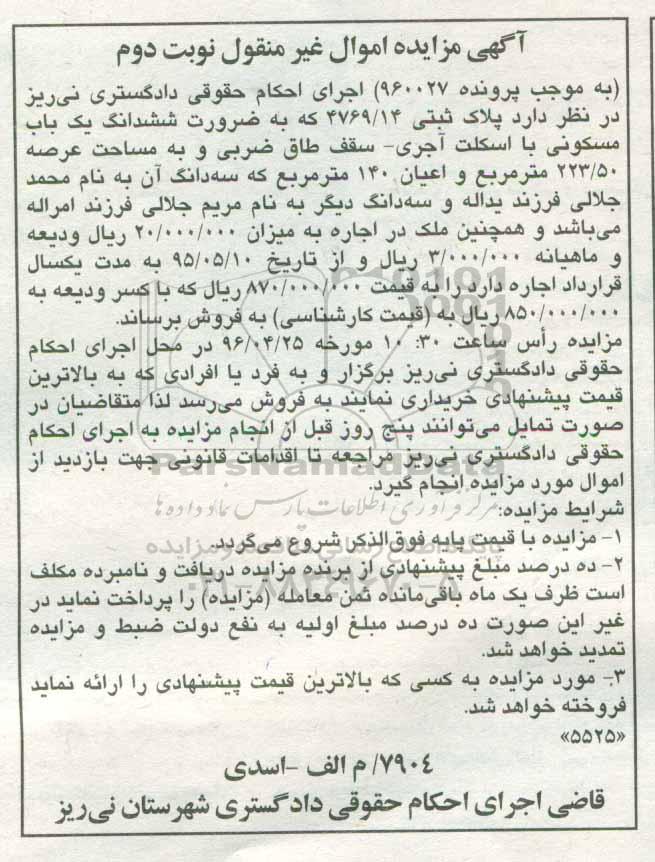 آگهی مزایده اموال غیر منقول نوبت دوم
(به موجب پرونده ۹۶۰۰۲۷) اجرای احکام حقوقی دادگستری نی‌ریز
در نظر دارد پلاک ثبتی ۴۷۶۹/۱۴ که به ضرورت ششدانگ یک باب
مسکونی با اسکلت آجری- سقف طاق ضربی و به مساحت عرصه
۲۲۳/۵۰ مترمربع و اعیان ۱۴۰ مترمربع که سه‌دانگ آن به نام محمد
جلالی فرزند یداله و سه‌دانگ دیگر به نام مریم جلالی فرزند امراله
می‌باشد و همچنین ملک در اجاره به میزان ۲۰/۰۰۰/۰۰۰ ریال ودیعه
و ماهیانه ۳/۰۰۰/۰۰۰ ریال و از تاریخ ۹۵/۰۵/۱۰ به مدت یکسال
قرارداد اجاره دارد را به قیمت ۸۷۰/۰۰۰/۰۰۰ ریال که با کسر ودیعه به
۸۵۰/۰۰۰/۰۰۰ ریال به (قیمت کارشناسی) به فروش برساند.
مزایده رأس ساعت ۳۰: ۱۰ مورخه ۹۶/۰۴/۲۵ در محل اجرای احکام
حقوقی دادگستری نی‌ریز برگزار و به فرد یا افرادی که به بالاترین
قیمت پیشنهادی خریداری نمایند به فروش می‌رسد لذا متقاضیان در
صورت تمایل می‌توانند پنج روز قبل از انجام مزایده به اجرای احکام
حقوقی دادگستری نی‌ریز مراجعه تا اقدامات قانونی جهت بازدید از
اموال مورد مزایده انجام گیرد.
ParsNamadData
شرایط مزایده:
مرکز فرآوری اطلاعات پارس نماد داده‌ها
۱- مزایده با قیمت پایه فوق‌الذکر شروع می‌گردد.
۲- ده درصد مبلغ پیشنهادی از برنده مزایده دریافت و نامبرده مکلف
است ظرف یک ماه باقی‌مانده ثمن معامله (مزایده) را پرداخت نماید در
غیر این صورت ده درصد مبلغ اولیه به نفع دولت ضبط و مزایده
تمدید خواهد شد.
۳- مورد مزایده به کسی که بالاترین قیمت پیشنهادی را ارائه نماید
فروخته خواهد شد.
«۵۵۲۵»
۷۹۰۴/ م الف -اسدی
قاضی اجرای احکام حقوقی دادگستری شهرستان نی‌ریز